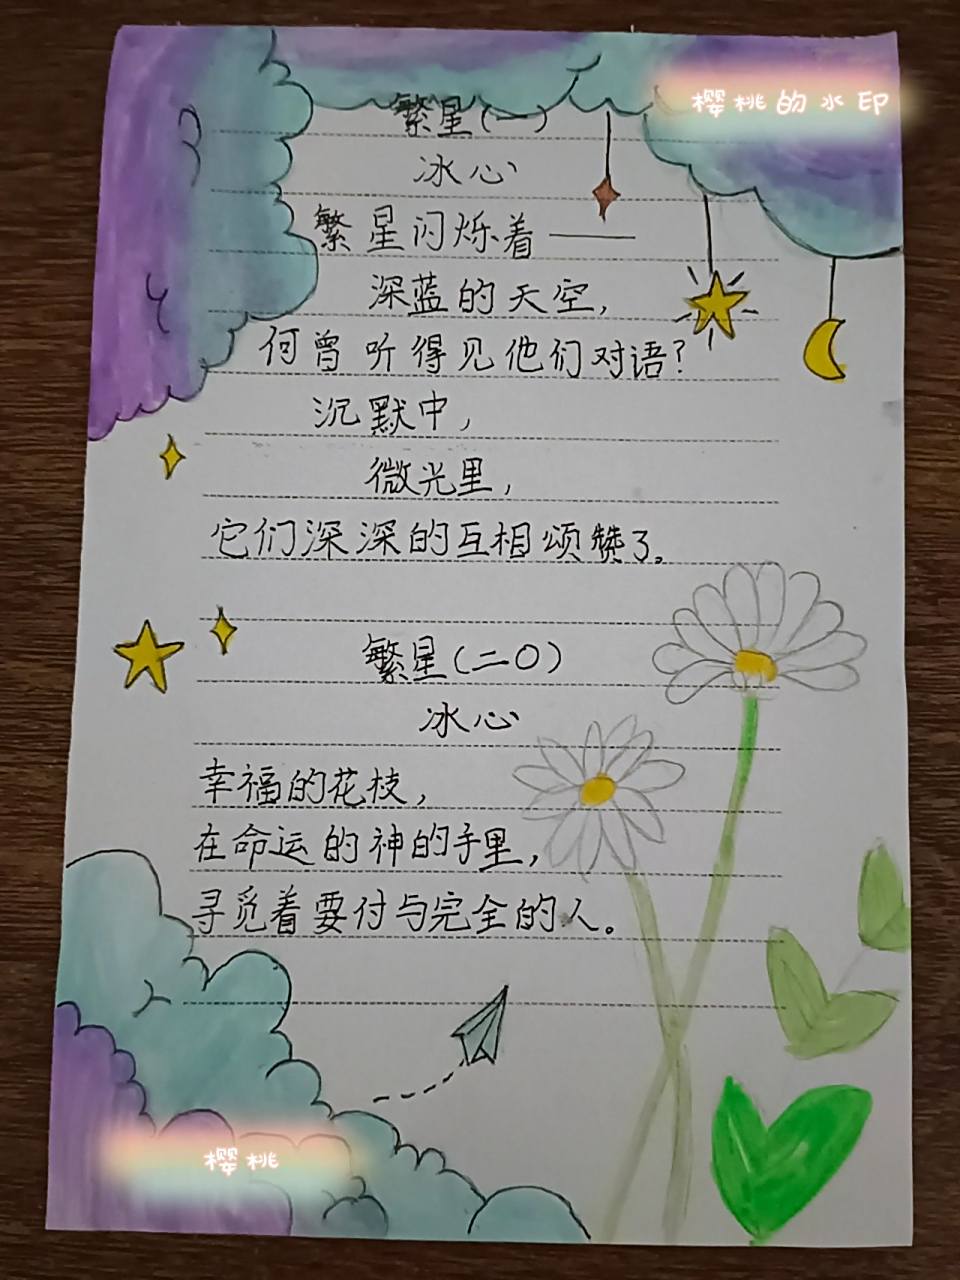 樱桃的水印
繁星(一)
冰心
繁星闪烁着——
深蓝的天空,
何曾听得见他们对语?
沉默中,
微光里,
它们深深的互相颂赞了。
繁星(二〇)
冰心
幸福的花枝,
在命运的神的手里,
寻觅着要付与完全的人。
樱桃